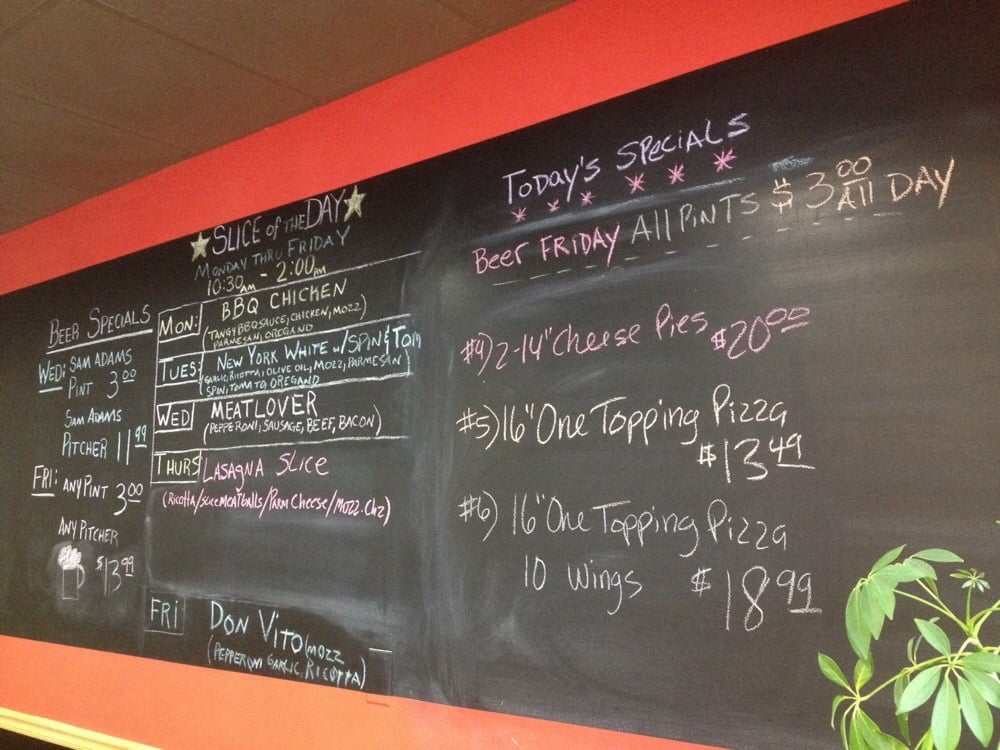 BEER SPECIALS
WED: SAM ADAMS
PINT 3.00
SAM ADAMS
PITCHER 11.99
FRI: ANY PINT 3.00
ANY PITCHER
$13.99
SLICE of THE DAY
MONDAY THRU FRIDAY
10:30AM - 2:00PM
MON: BBQ CHICKEN
(TANGY BBQ SAUCE, CHICKEN, MOZZ
PARMESAN, OREGANO
TUES: NEW YORK WHITE w/SPIN & TOM
GARLIC, RICOTTA, OLIVE OIL, MOZZ, PARMESAN
SPIN, TOMATO, OREGANO
WED MEATLOVER
(PEPPERONI, SAUSAGE, BEEF, BACON)
THURS LASAGNA SLICE
(RICOTTA/SLICE MEATBALLS/PARM CHEESE/MOZZ-CHZ)
FRI DON VITO (MOZZ
(PEPPERONI GARLIC, RICOTTA)
TODAY'S SPECIALS
Beer FRIDAY All PINTS $3.00 All DAY
#4) 2-14" Cheese Pies $20.00
#5) 16" One Topping Pizza
$13.49
#6) 16" One Topping Pizza
10 Wings $18.99